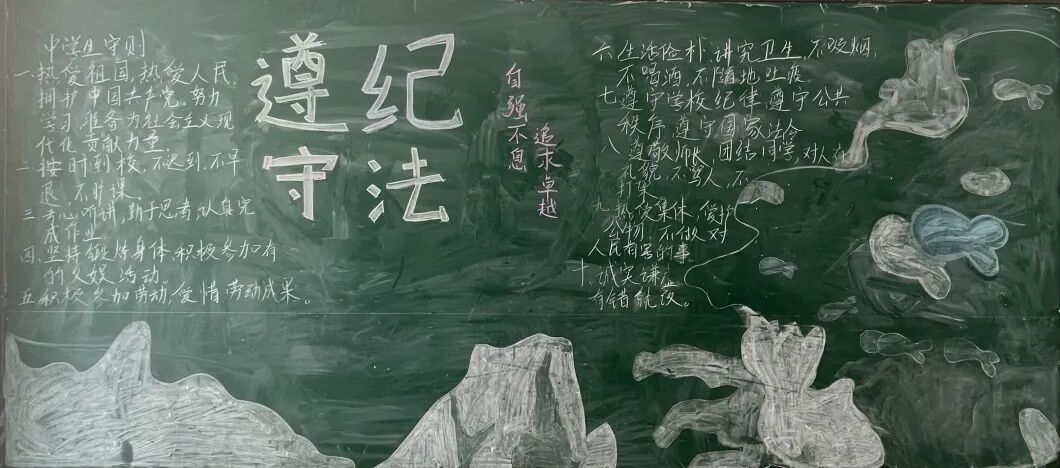 中学生守则
一.热爱祖国,热爱人民,
拥护中国共产党,努力
学习,准备为社会主义现
代化贡献力量.
二.按时到校,不迟到,不早
退,不旷课.
三.专心听讲,勤于思考,认真完
成作业
四.坚持锻炼身体,积极参加有
的文娱活动
五.积极参加劳动,爱惜劳动成果。
遵纪
守法
自强不息
追求卓越
六.生活俭朴,讲究卫生,不吸烟,
不喝酒,不随地吐痰
七.遵守学校纪律,遵守公共
秩序,遵守国家法令
八.遵敬师长,团结同学,对人有
礼貌,不骂人,不
打架
九.热爱集体,爱护
公物,不做对
人民有害的事.
十.诚实谦虚
有错就改。